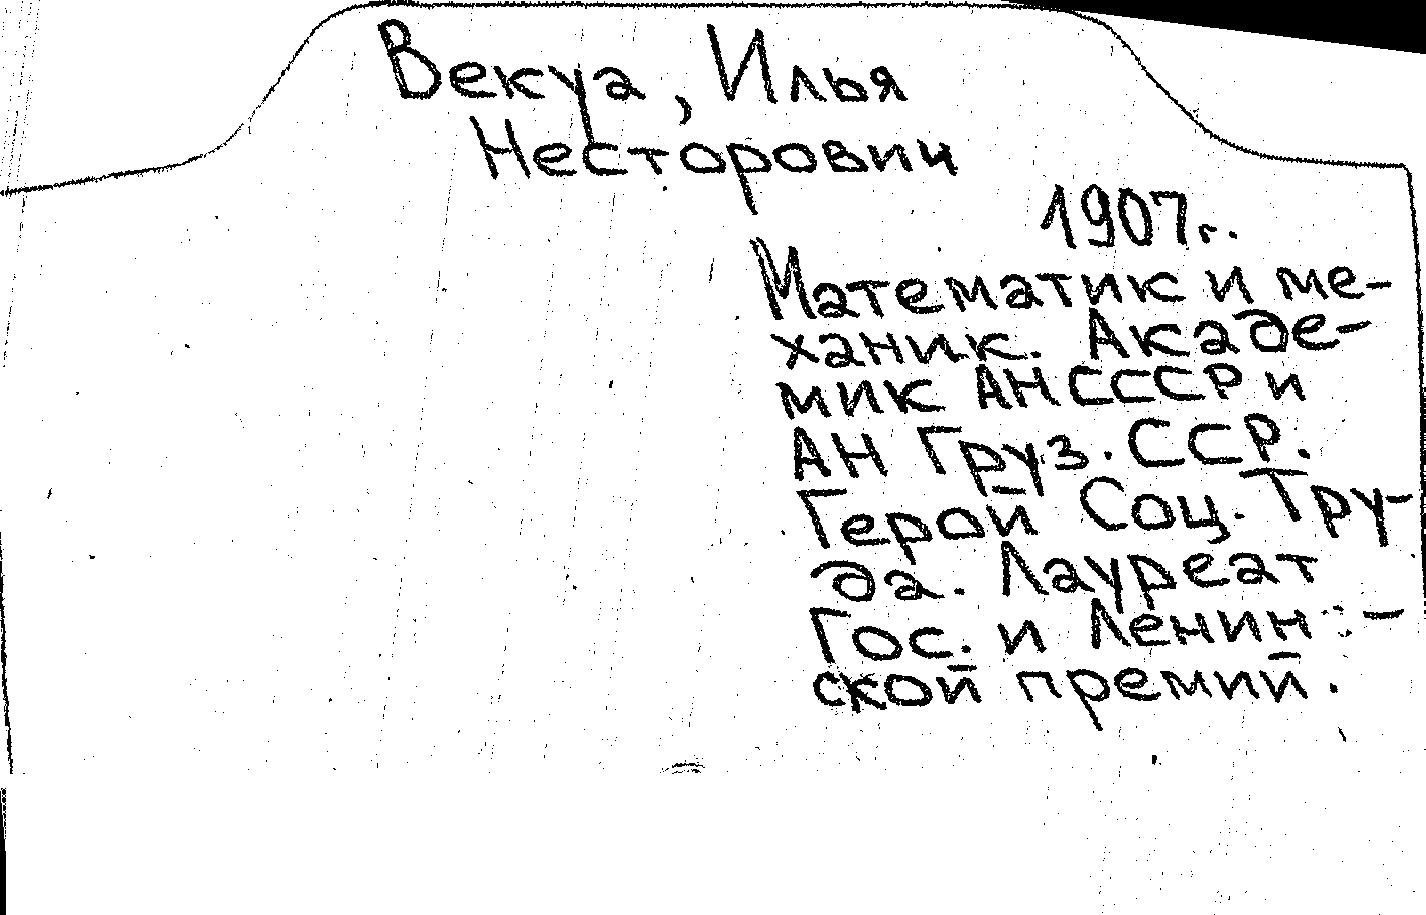 Векуа, Илья
Несторович
1907г.
Математик и ме-
ханик. Акаде-
мик АН СССР и
АН Груз. ССР.
Герой Соц. Тру-
да. Лауреат
Гос. и Ленин-
ской премий.